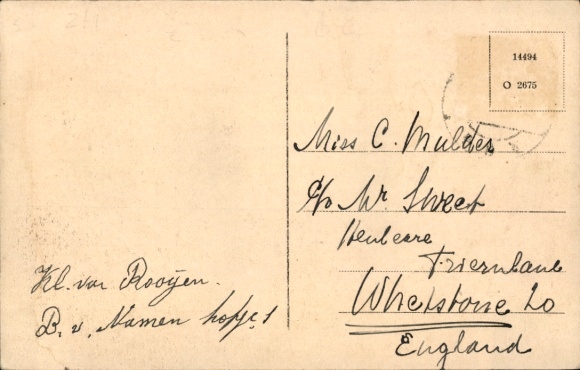 14494
O 2675
Miss C. Mulder
c/o Mr Sweet
Friern
Whetstone 20
England
Kl. van Rooijen.
B. v. Namen hofje 1